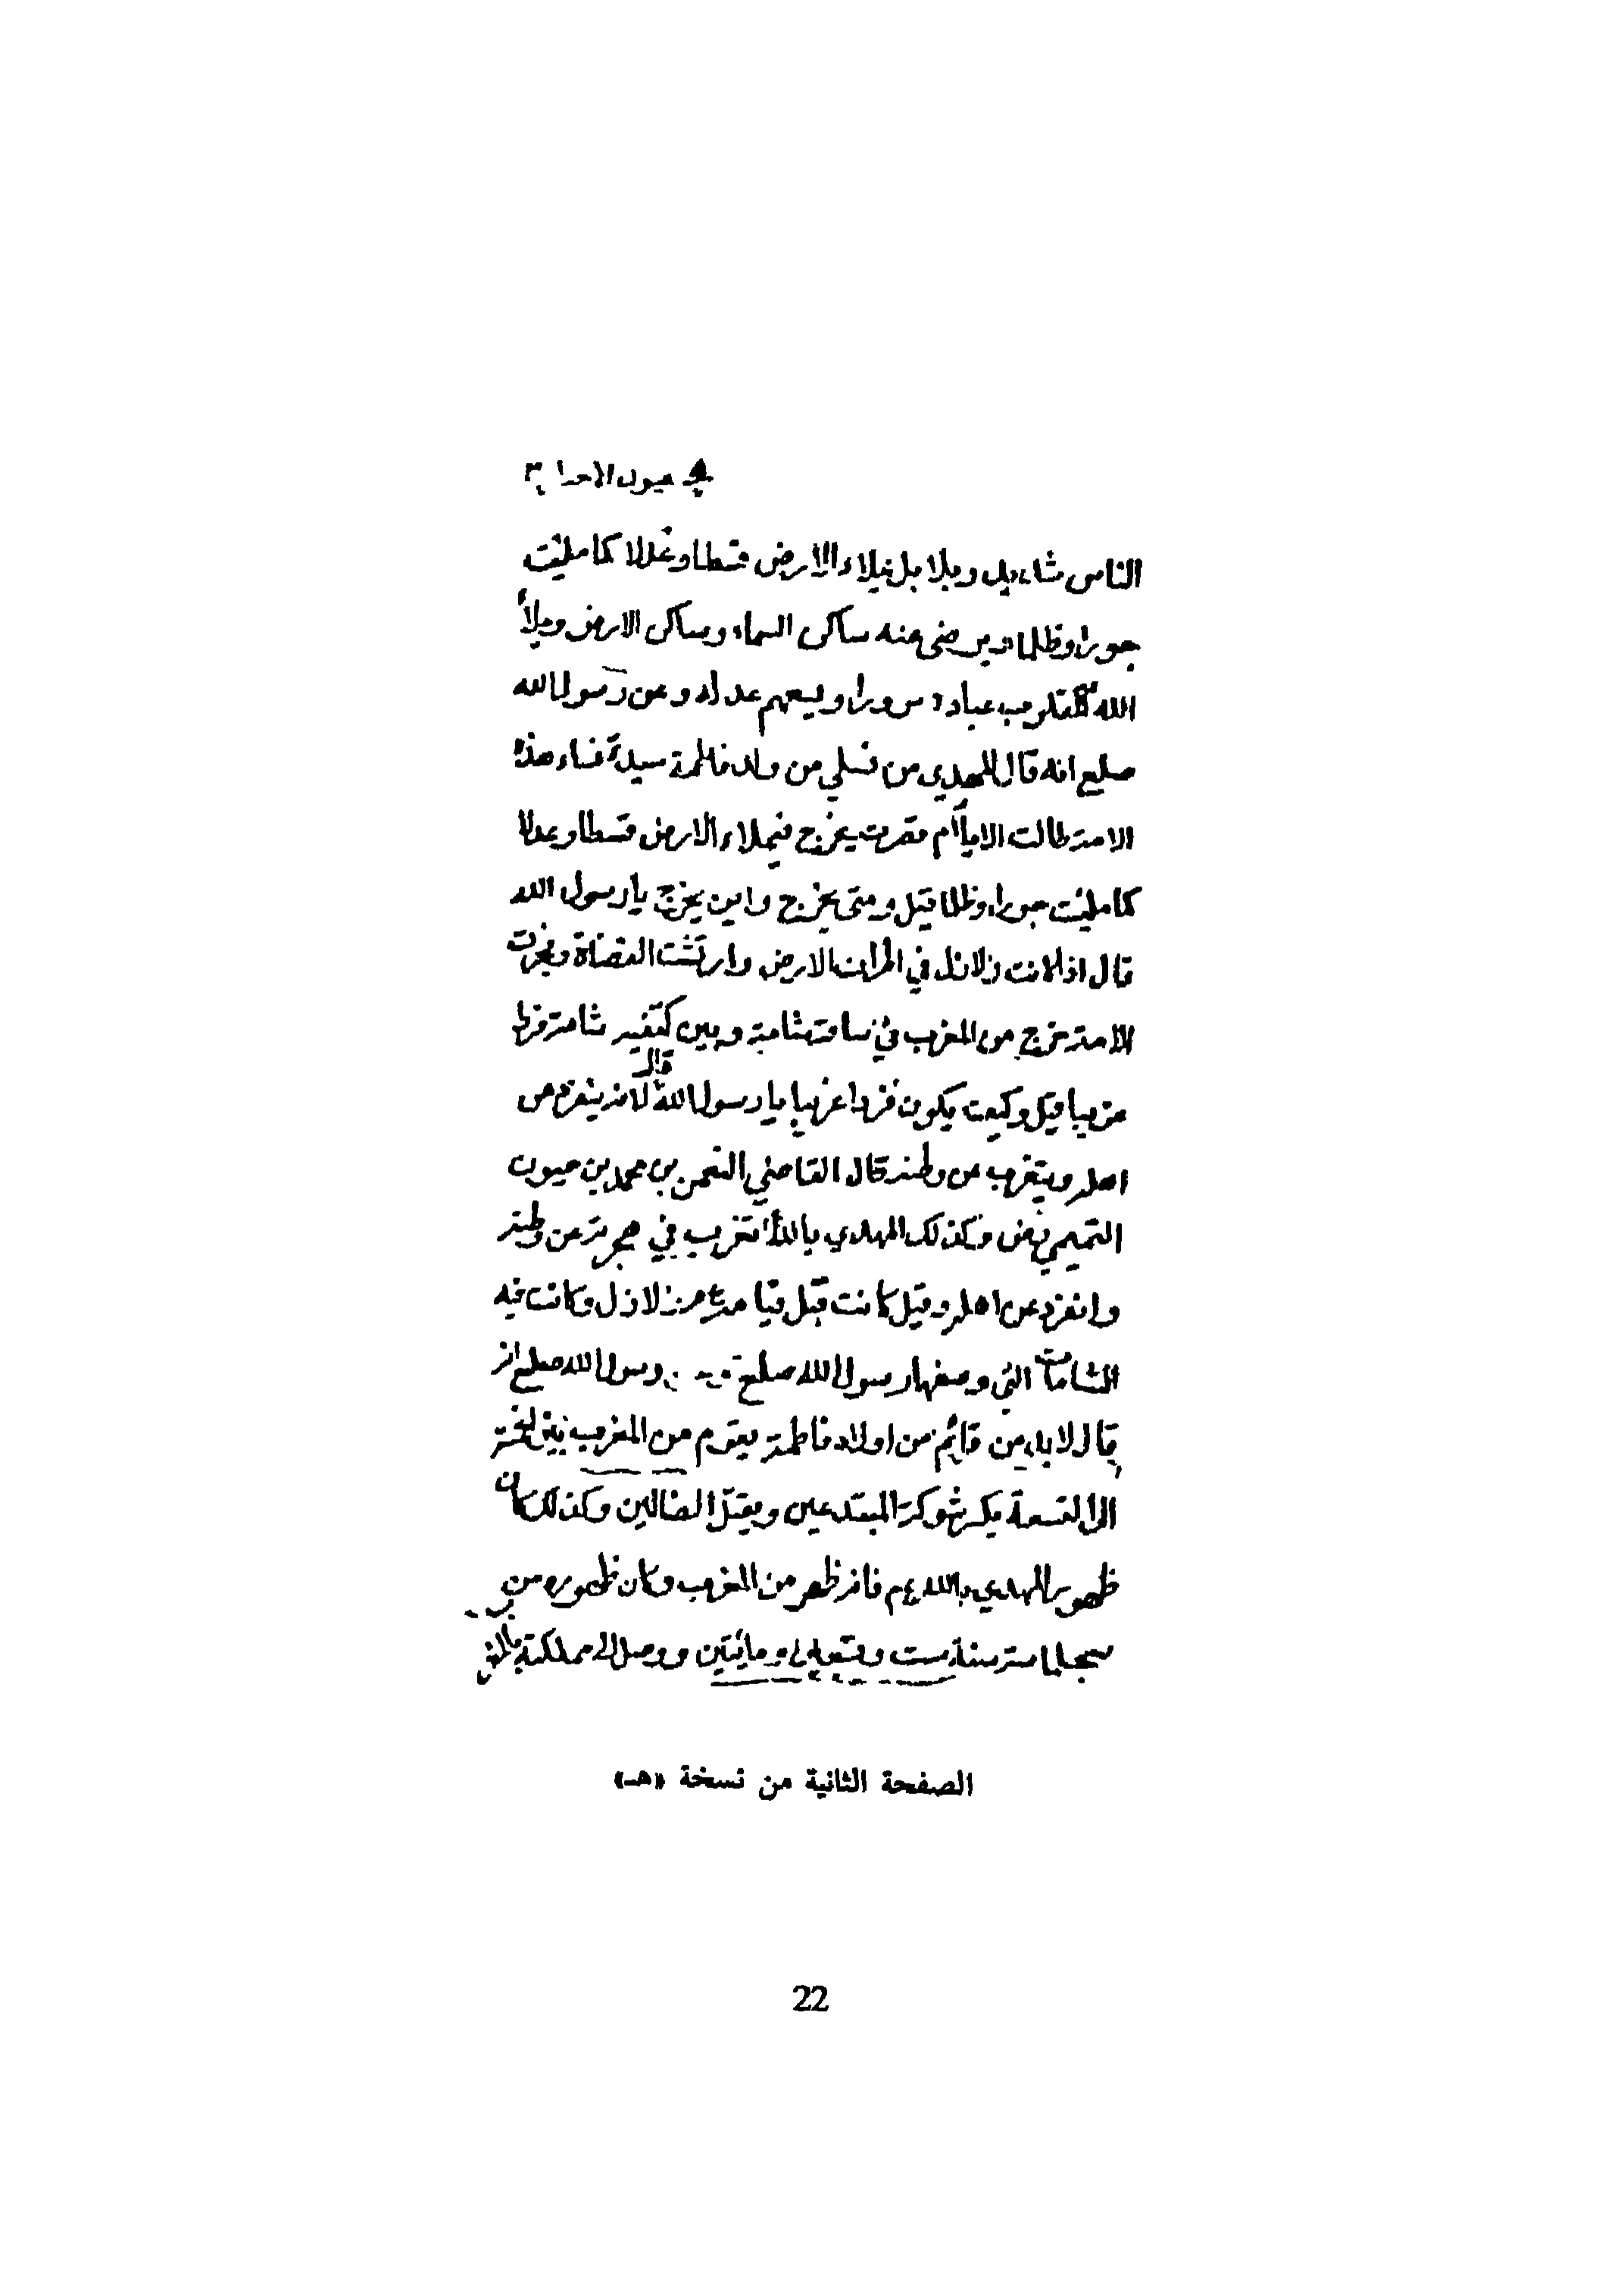 عيون الاخبار
الناس وبلا بل يملاء الارض قسطا وعدلا كما ملئت
جورا وظلما يرضى عنه ساكن السماء وساكن الارض ويملأ
الله قلوب عباده سرورا ويسعهم عدله وعن رسول الله
صلع انه قال المهدي من نسلي من ولد فاطمة سيدة نساء هذه
الامة طالت الايام ام قصرت يخرج فيملاء الارض قسطا وعدلا
كما ملئت جورا وظلما قيل ومتى يخرج واين يخرج يا رسول الله
قال اذا كانت زلازل في اطراف الارض وارتشت القضاة وفجرت
الامة خرج من المغرب في وبين كتفيه شامة فردا
غريبا قيل وكيف يكون فردا غريبا يا رسول الله قال لانه ينفرد من
اهله ويتغرب عن وطنه قال القاضي النعمن بن محمد بن حيون
التميمي رض وكذلك المهدي بالله تغرب في هجرته عن وطنه
وانفرد عن اهله وقيل كانت قبل قيامه ع م زلازل وكانت فيه
الشامات التي وصفها رسول الله صلع رسول الله صلع انه
قال لا بد من قائم من اولاد فاطمة يقوم من المغرب بين الخمسة
الى التسعة يكسر شوكة المبتدعين ويقتل الضالين وكذلك كان
ظهور المهدي بالله ع م فانه ظهر من المغرب وكان ظهوره من
سجلماسة سنة ست وتسعين ومائتين ووصل الى مملكته
الصفحة الثانية من نسخة «هـ»
22